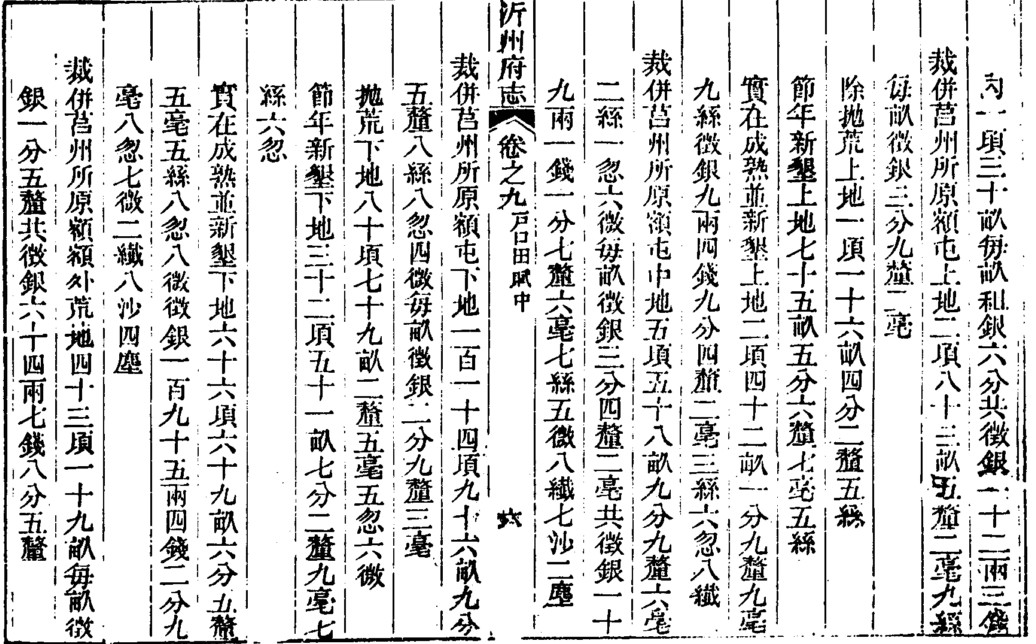 內一頃三十畝每畝租銀六分共徵銀一十二兩三錢
裁併莒州所原額屯上地二頃八十三畝五釐二毫九絲
每畝徵銀三分九釐二毫
除拋荒上地一頃一十六畝四分二釐五絲
節年新墾上地七十五畝五分六釐七毫五絲
實在成熟並新墾上地二頃四十二畝一分九釐九毫
九絲徵銀九兩四錢九分四釐二毫三絲六忽八纖
裁併莒州所原額屯中地五頃五十八畝九分九釐六毫
二絲一忽六微每畝徵銀三分四釐二毫共徵銀一十
九兩一錢一分七釐六毫七絲五微八纖七沙二塵
沂州府志 卷之九 戶口田賦中 六
裁併莒州所原額屯下地一百一十四頃九十六畝九分
五釐八絲八忽四微每畝徵銀二分九釐三毫
拋荒下地八十頃七十九畝二釐五毫五忽六微
節年新墾下地三十二頃五十一畝七分二釐九毫七
絲六忽
實在成熟並新墾下地六十六頃六十九畝六分五釐
五毫五絲八忽八微徵銀一百九十五兩四錢二分九
毫八忽七微二纖八沙四塵
裁併莒州所原額額外荒地四十三頃一十九畝每畝徵
銀一分五釐共徵銀六十四兩七錢八分五釐